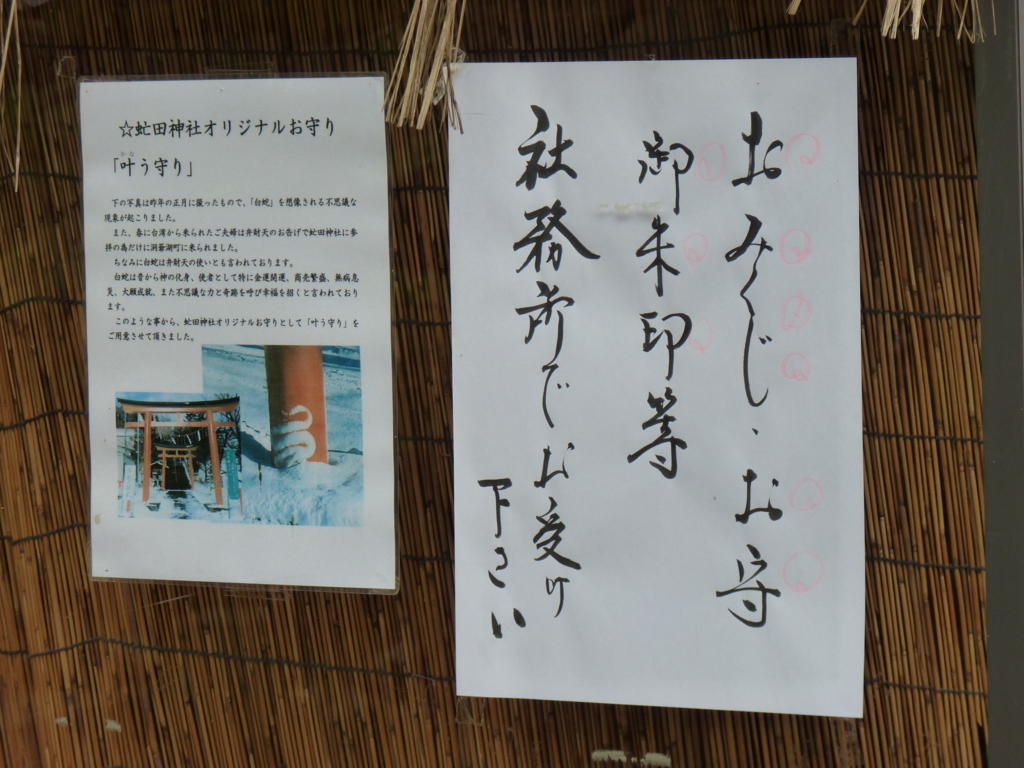 ☆虻田神社オリジナルお守り
かな
「叶う守り」
下の写真は昨年の正月に撮ったもので、「白蛇」を想像される不思議な
現象が起こりました。
また、春に台湾から来られたご夫婦は弁財天のお告げで虻田神社に参
拝の為だけに洞爺湖町に来られました。
ちなみに白蛇は弁財天の使いとも言われております。
白蛇は昔から神の化身、使者として特に金運開運、商売繁盛、無病息
災、大願成就、また不思議な力と奇跡を呼び幸福を招くと言われており
ます。
このような事から、虻田神社オリジナルお守りとして「叶う守り」を
ご用意させて頂きました。
おみくじ、お守
御朱印等
社務所でお受け
下さい